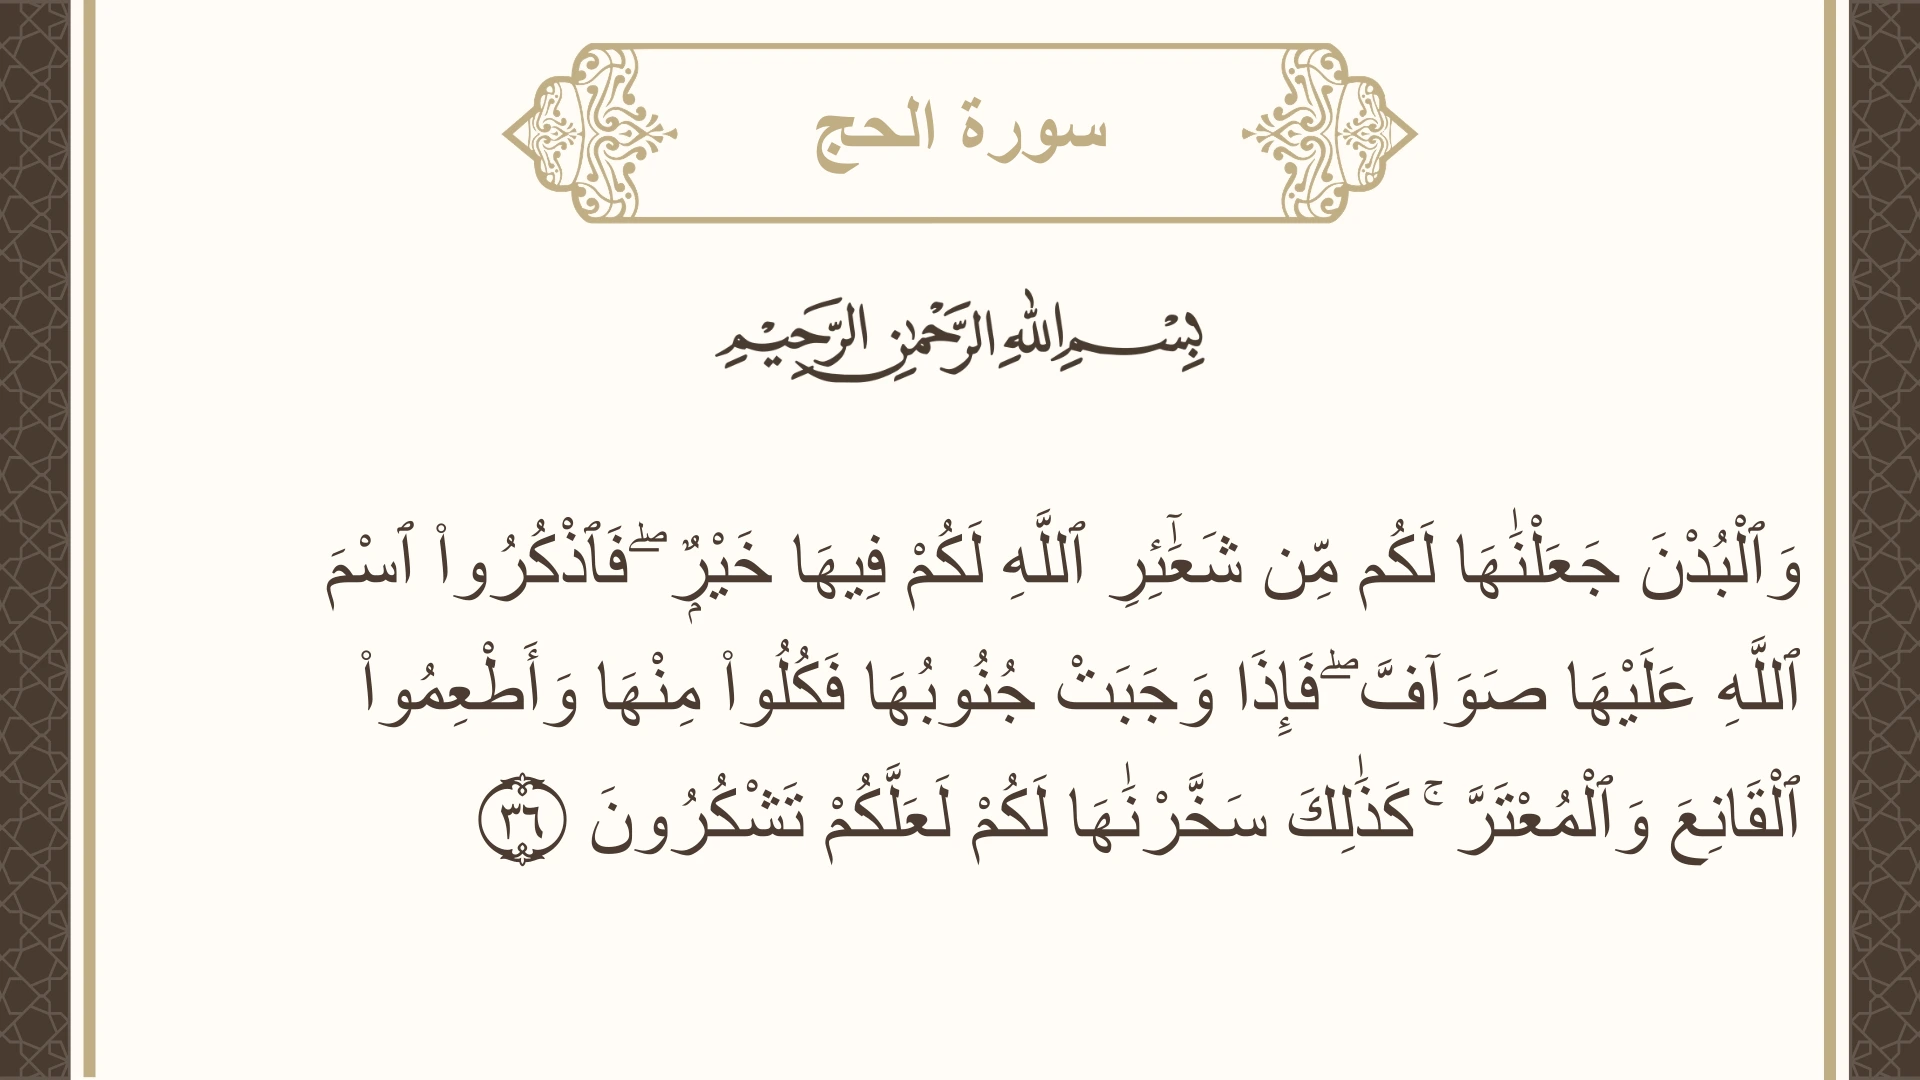 سورة الحج
بِسْمِ اللهِ الرَّحْمٰنِ الرَّحِيْمِ
وَٱلْبُدْنَ جَعَلْنَٰهَا لَكُم مِّن شَعَٰٓئِرِ ٱللَّهِ لَكُمْ فِيهَا خَيْرٌۭ ۖ فَٱذْكُرُوا۟ ٱسْمَ
ٱللَّهِ عَلَيْهَا صَوَآفَّ ۖ فَإِذَا وَجَبَتْ جُنُوبُهَا فَكُلُوا۟ مِنْهَا وَأَطْعِمُوا۟
ٱلْقَانِعَ وَٱلْمُعْتَرَّ ۚ كَذَٰلِكَ سَخَّرْنَٰهَا لَكُمْ لَعَلَّكُمْ تَشْكُرُونَ ٣٦